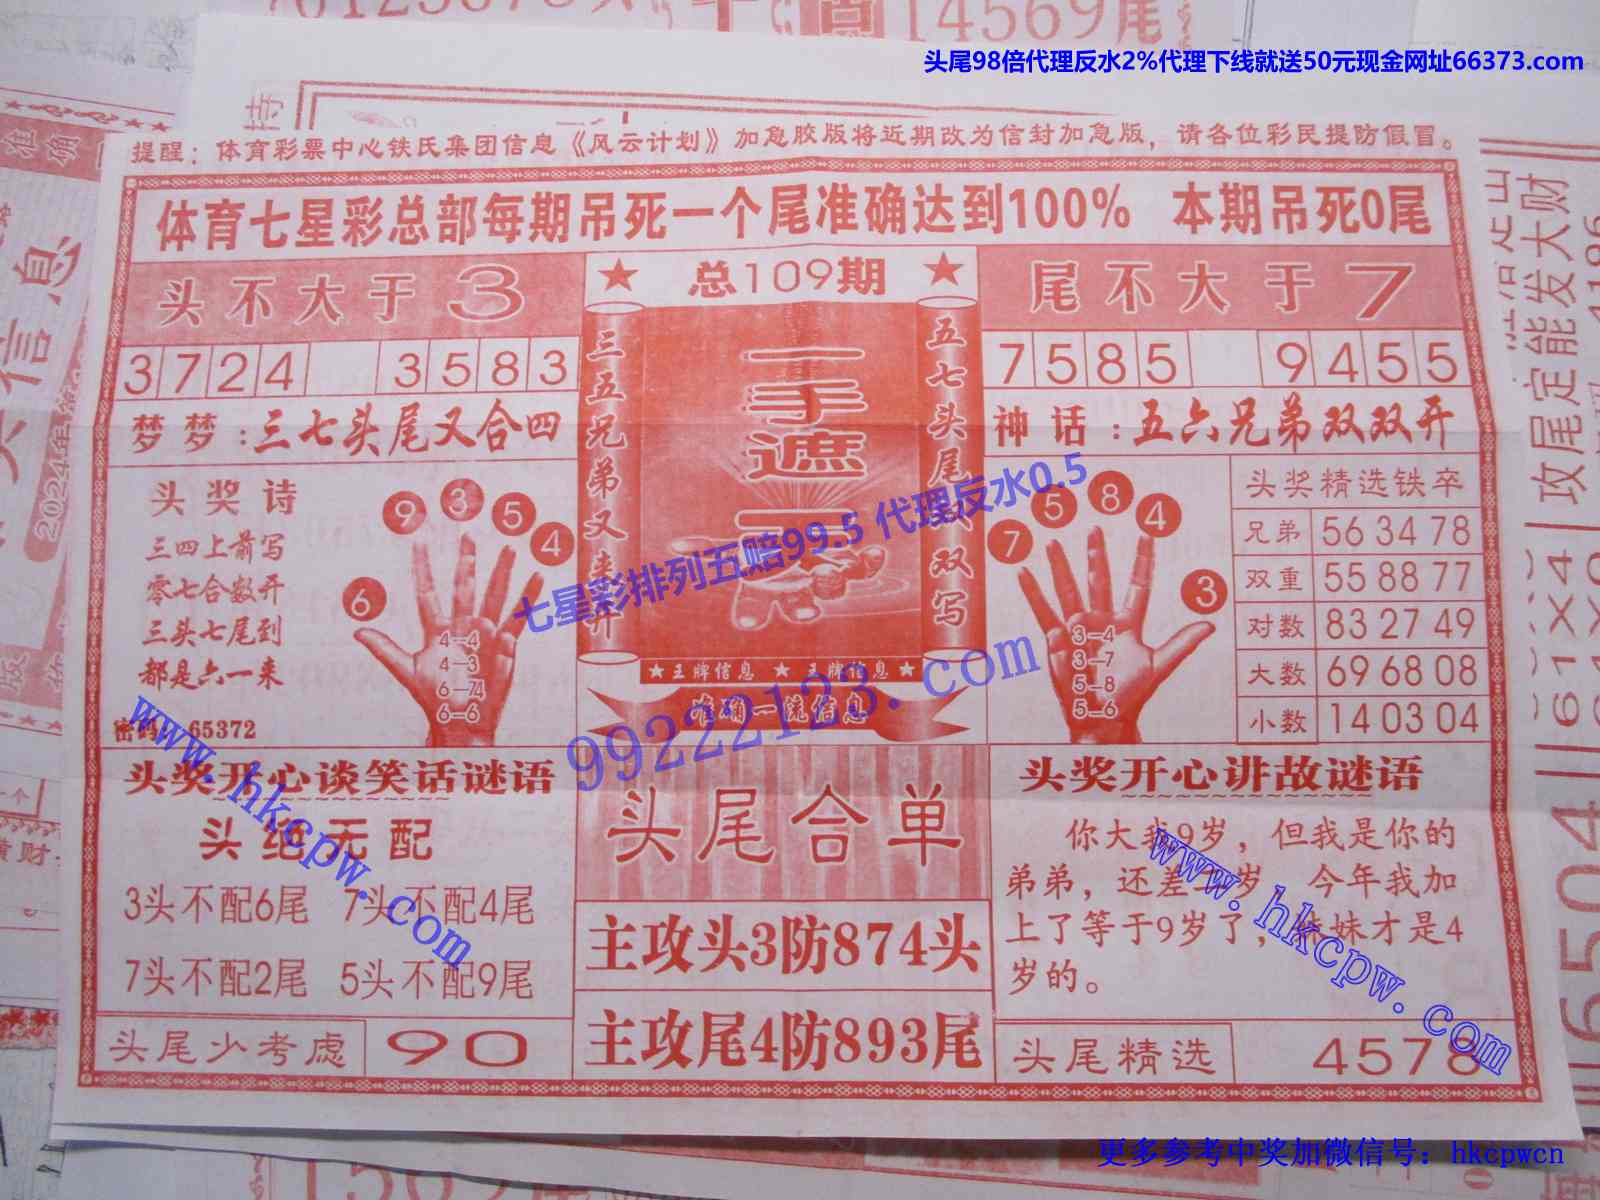 14569尾
头尾98倍代理反水2%代理下线就送50元现金网址66373.com
提醒：体育彩票中心铁氏集团信息《风云计划》加急胶版将近期改为信封加急版，请各位彩民提防假冒。
体育七星彩总部每期吊死一个尾准确达到100% 本期吊死0尾
头不大于3
总109期
尾不大于7
3724 3583
7585 9455
梦梦：三七头尾又合四
神话：五六兄弟双双开
三五兄弟又来开
一手遮天
五七头尾双双写
头奖诗
三四上前写
零七合数开
三头七尾到
都是六一来
密码：65372
6 9 3 5 4
4—4
4—3
6—74
6—6
7 5 8 4 3
3—4
3—7
5—8
5—6
头奖精选铁卒
兄弟 56 34 78
双重 55 88 77
对数 83 27 49
大数 69 68 08
小数 14 03 04
★王牌信息 ★ 王牌信息★
准确一流信息
七星彩排列五赔99.5 代理反水0.5
99222123.com
头奖开心谈笑话谜语
头绝无配
3头不配6尾 7头不配4尾
7头不配2尾 5头不配9尾
头尾少考虑 90
头尾合单
主攻头3防874头
主攻尾4防893尾
头奖开心讲故谜语
你大我9岁，但我是你的
弟弟，还差 岁 今年我加
上了等于9岁了， 妹才是4
岁的。
头尾精选 4578
www.hkcpw.com
www.hkcpw.com
更多参考中奖加微信号：hkcpwcn
准确
信息
2024年
攻尾定能发大财
61X4
6504